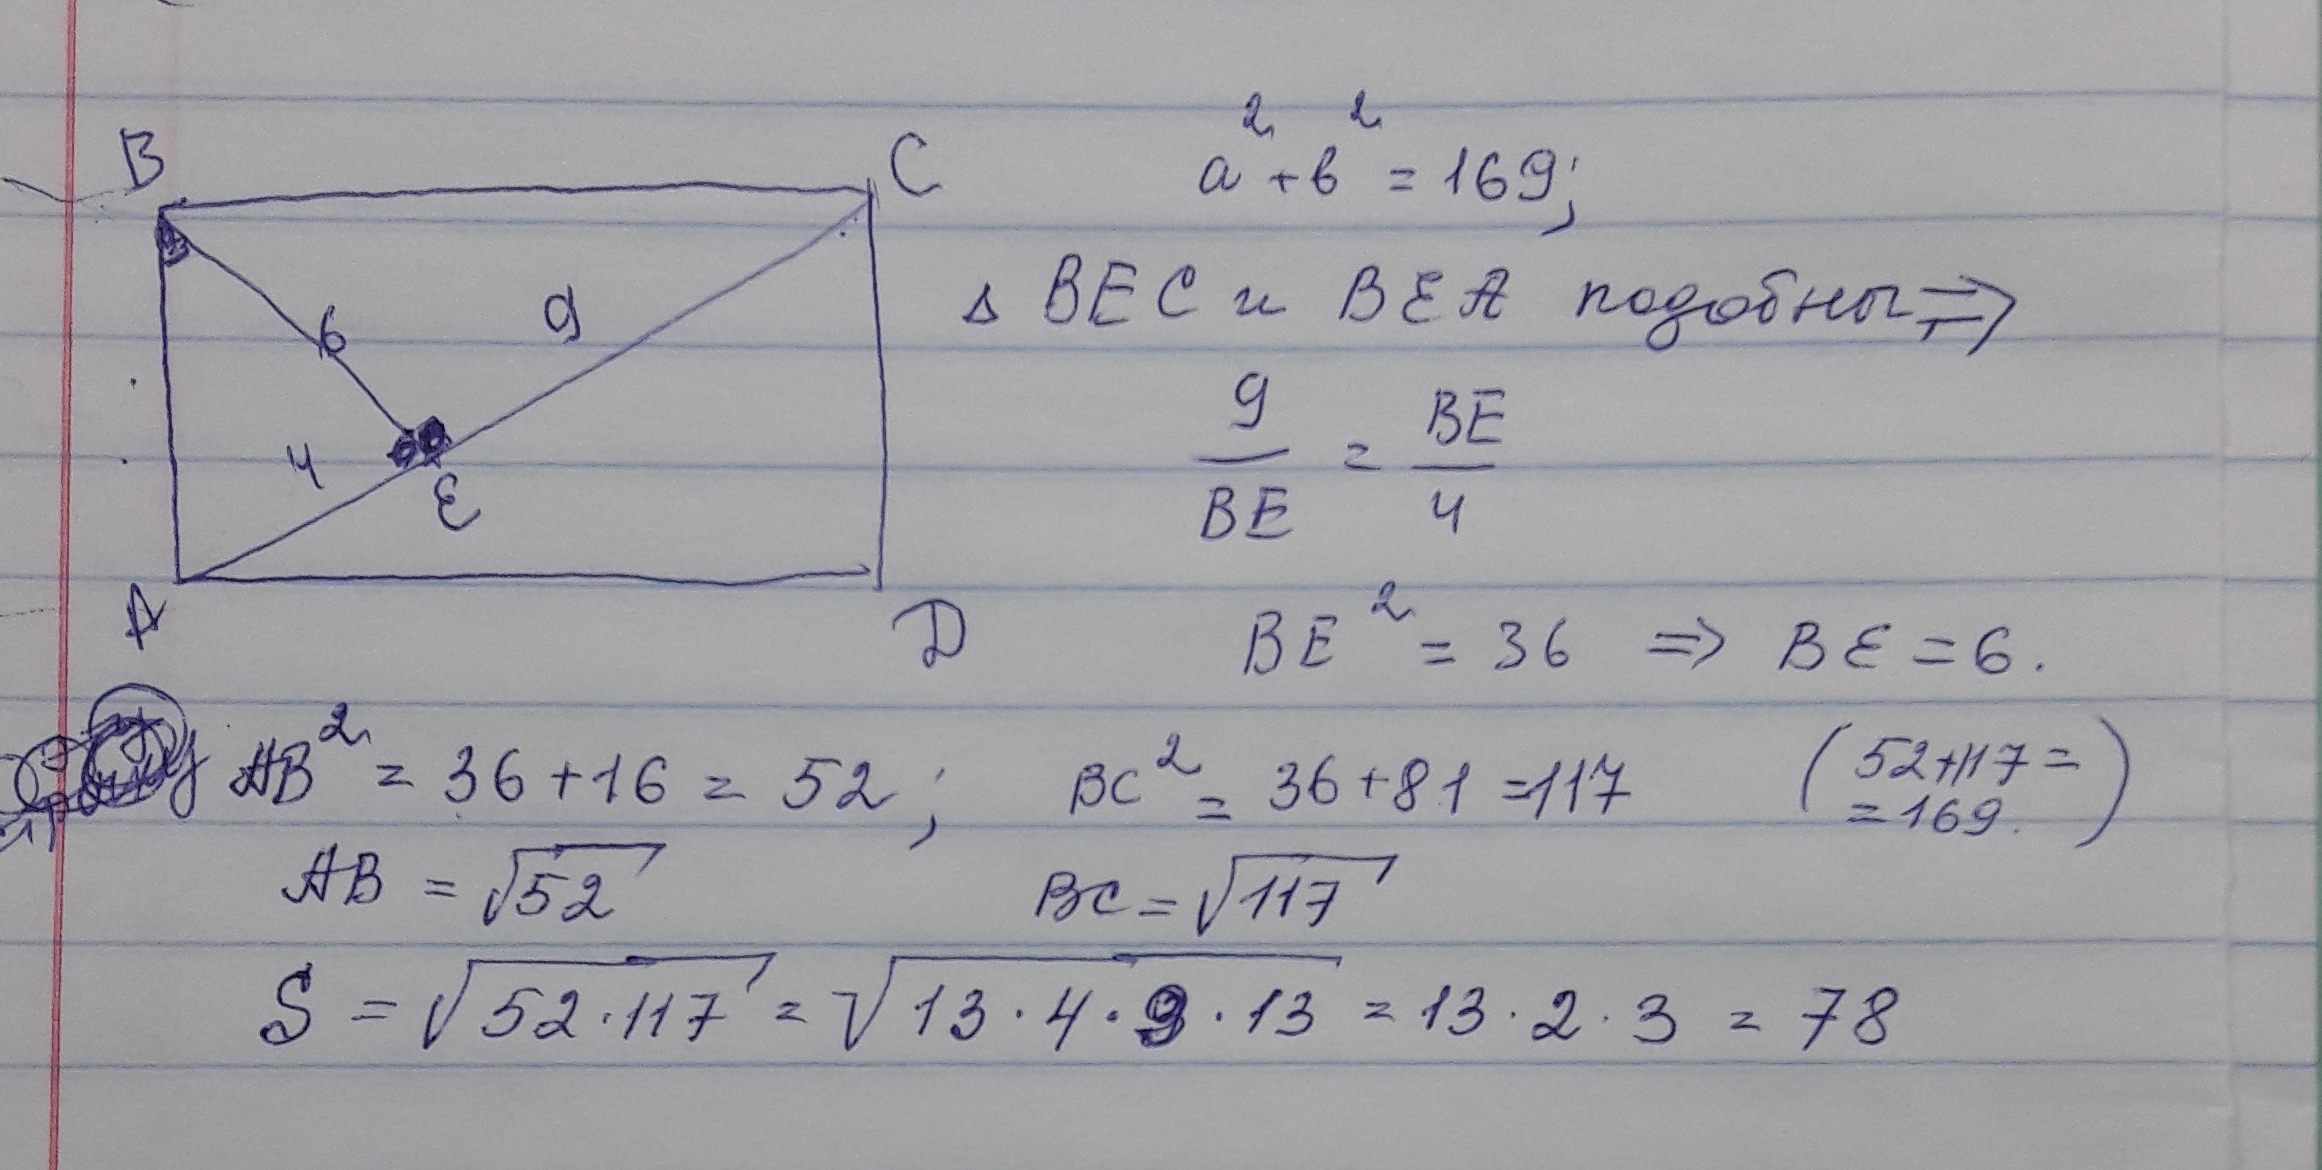 B C
6 9
4
E
A D
a² + b² = 169;
Δ BEC и BEA подобны ⇒
9/BE = BE/4
BE² = 36 ⇒ BE = 6.
AB² = 36 + 16 = 52; BC² = 36 + 81 = 117 (52 + 117 =
= 169.)
AB = √52 BC = √117
S = √52 · 117 = √13 · 4 · 9 · 13 = 13 · 2 · 3 = 78